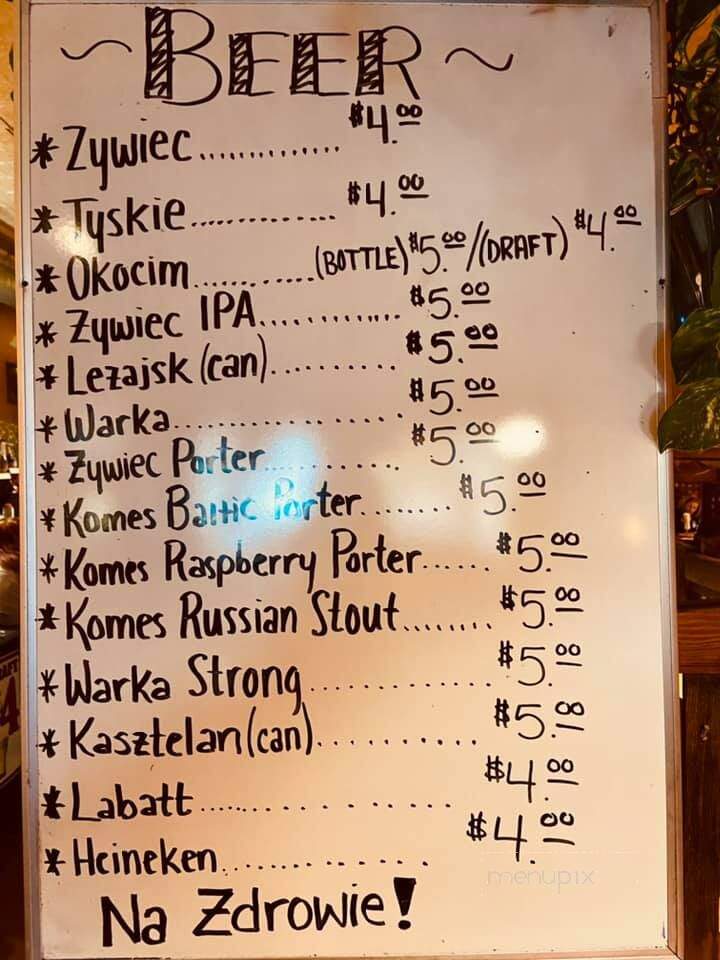 ~ BEER ~
* Zywiec............. $4.00
* Tyskie.............. $4.00
* Okocim............(BOTTLE) $5.00/(DRAFT) $4.00
* Żywiec IPA.............. $5.00
* Leżajsk (can).......... $5.00
* Warka.................. $5.00
* Żywiec Porter........... $5.00
* Komes Baltic Porter........ $5.00
* Komes Raspberry Porter...... $5.00
* Komes Russian Stout........ $5.00
* Warka Strong............... $5.00
* Kasztelan (can)........... $5.00
* Labatt.............. $4.00
* Heineken.............. $4.00
Na Zdrowie!
menupix